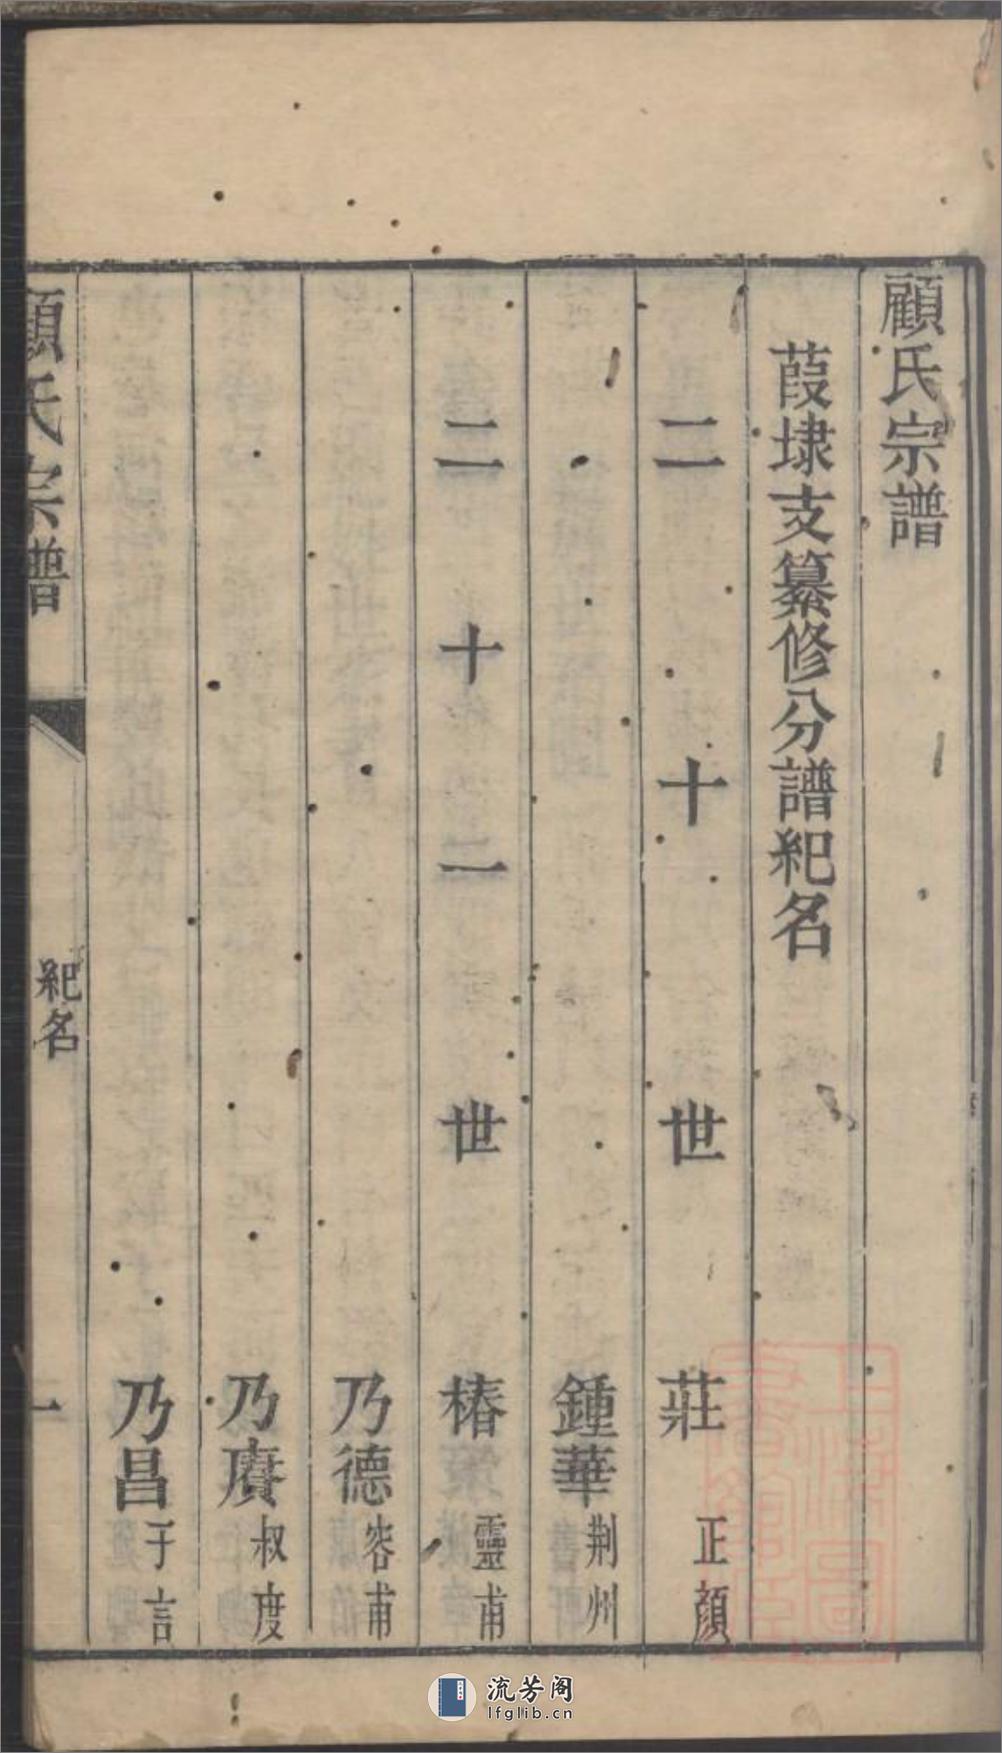 顧氏宗譜
葭埭支纂修分譜紀名
二十世 莊 正顏
鍾華 荆州
二十二世 椿 靈甫
乃德 容甫
乃賡 叔度
乃昌 子言
顧氏宗譜 紀名 一
上海圖書館藏
流芳阁
lfglib.cn